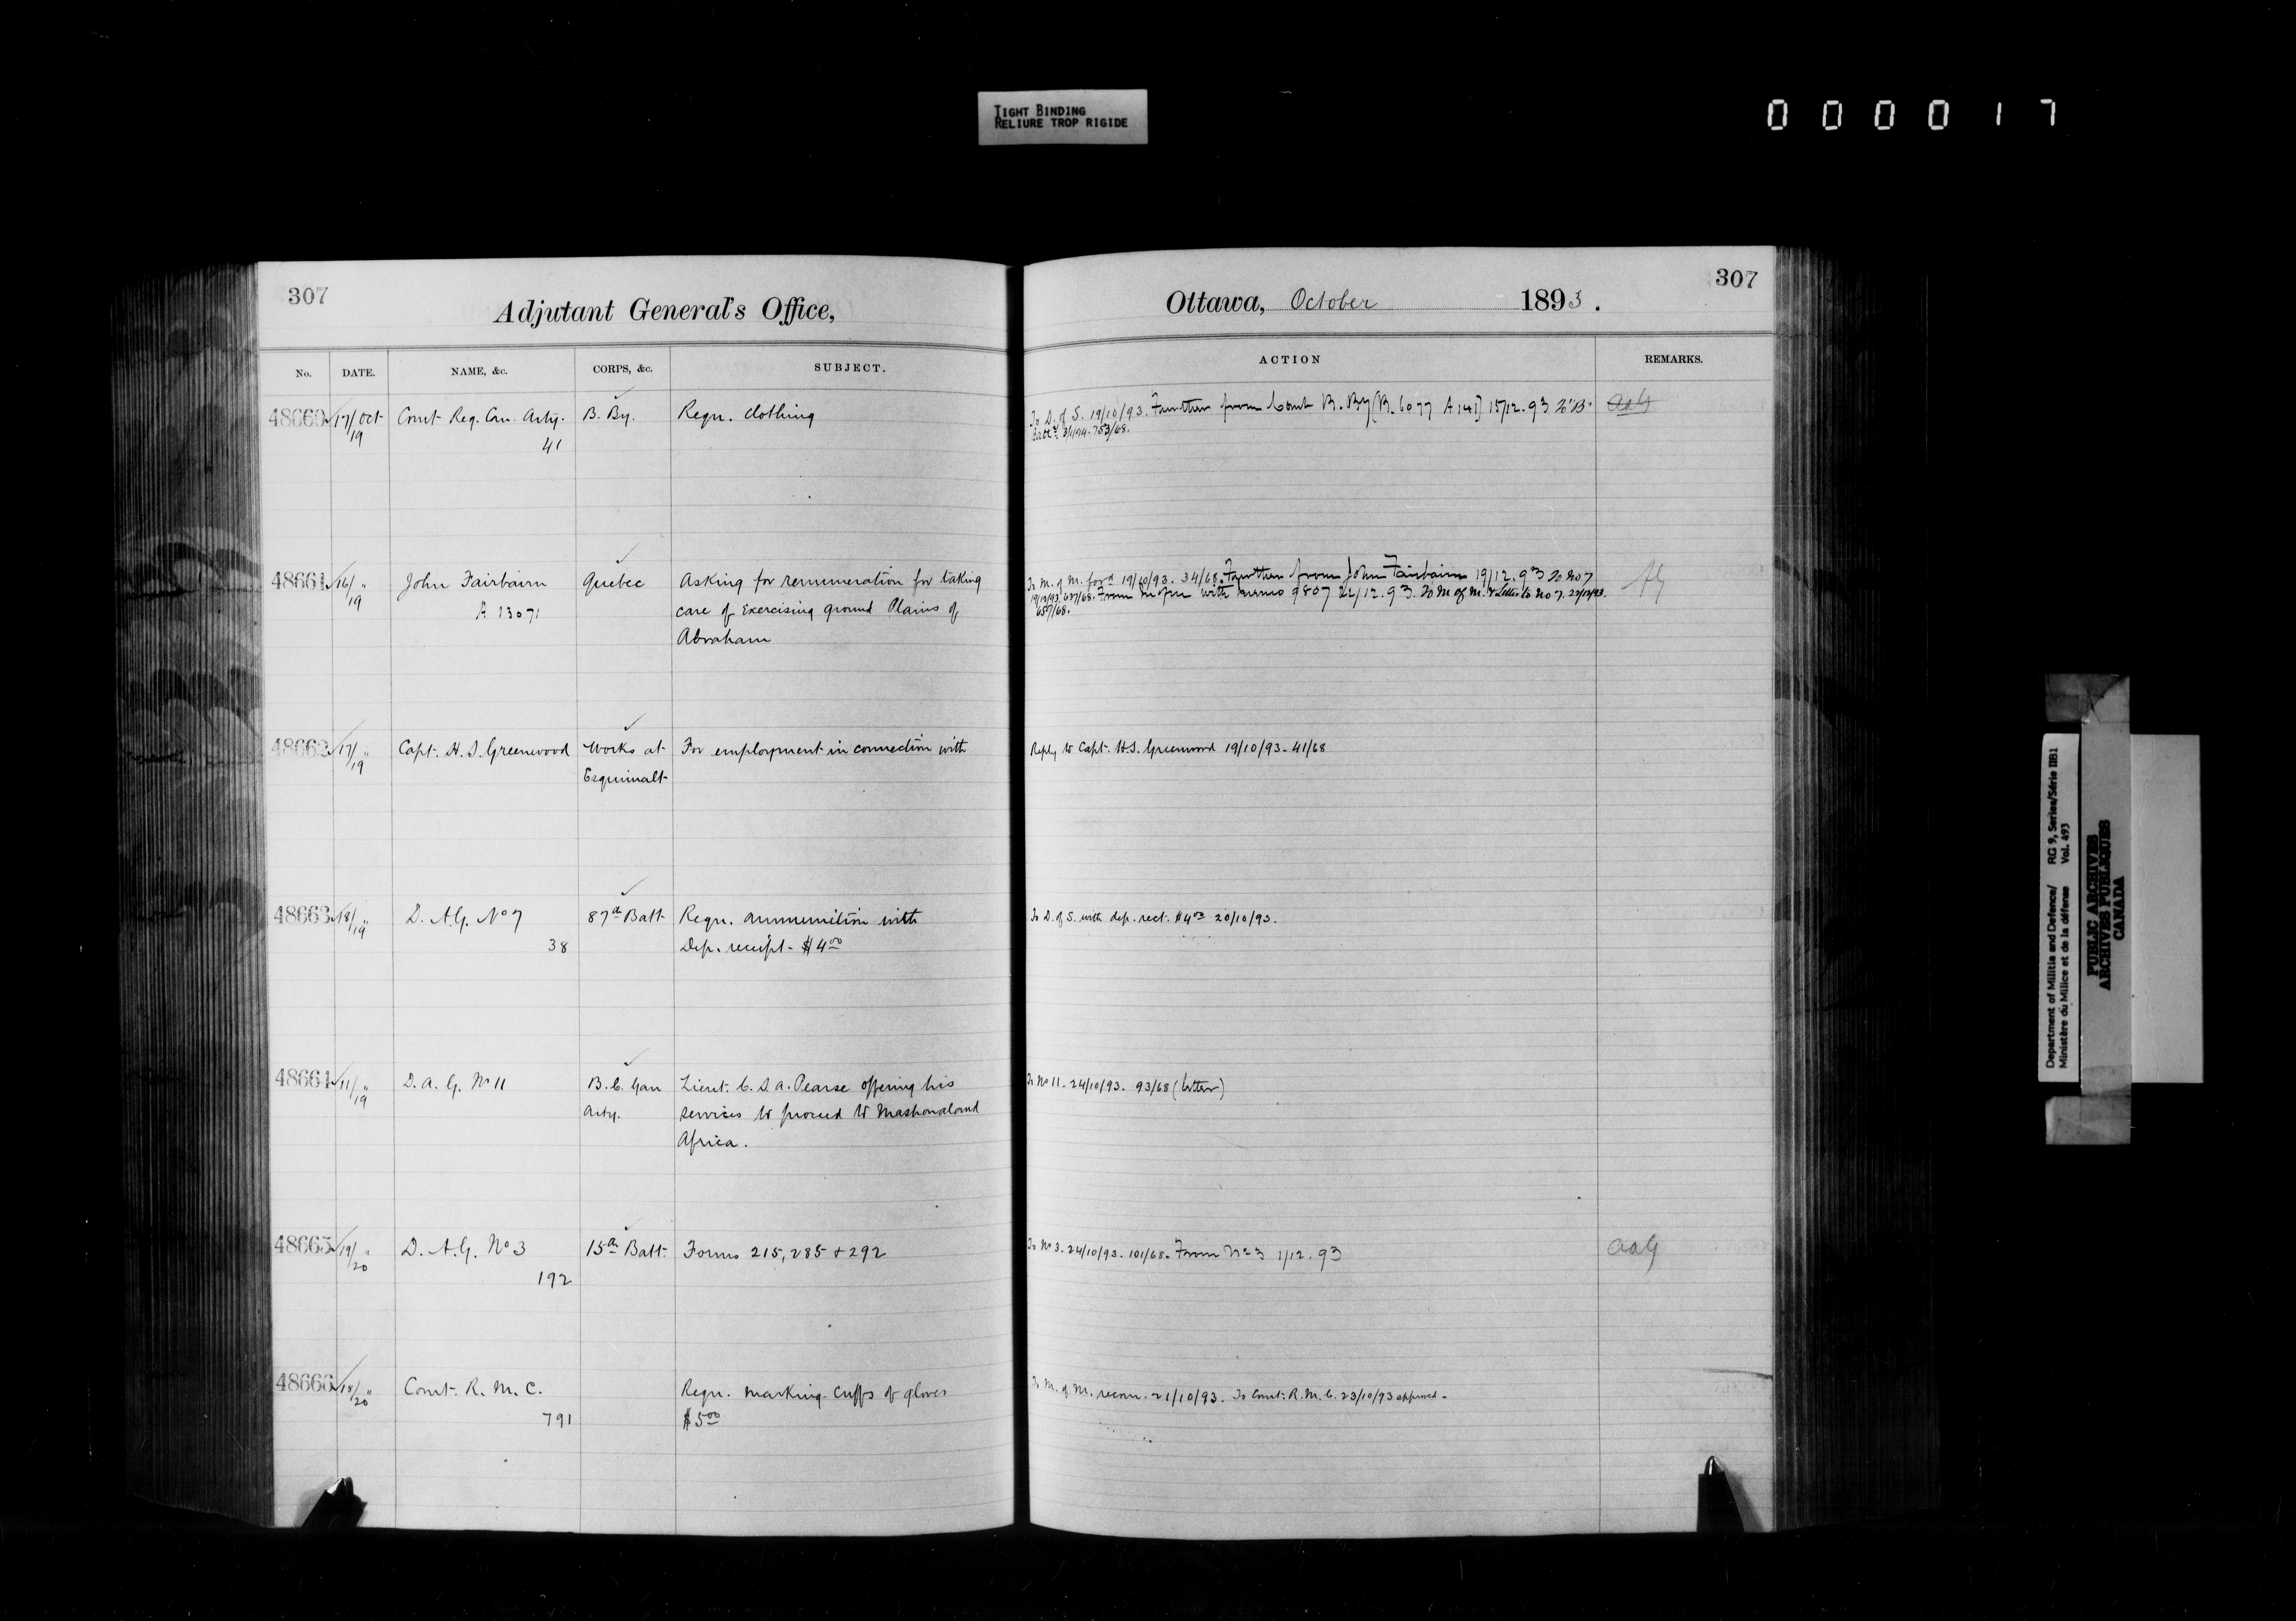 TIGHT BINDING
RELIURE TROP RIGIDE
000017
307
Adjutant General's Office,
No. DATE. NAME, &c. CORPS, &c. SUBJECT.
48660 17/19 Oct Comt Reg. Can. Arty. B. By. Regn. Clothing
41
48661 16/19 " John Fairbairn Quebec Asking for remuneration for taking
A 13071 care of Exercising ground Plains of
Abraham
48662 17/19 " Capt. H. S. Greenwood Works at For employment in connection with
Esquimalt
48663 18/19 " D. A.G. No 7 87th Batt Regn. ammunition with
38 Dep. receipt - $4.00
48664 11/19 " D. A. G. No 11 B. C. Gar Lieut. C. S. A. Pearse offering his
Arty. services to proceed to Mashonaland
Africa.
48665 19/20 " D. A.G. No 3 15th Batt. Forms 215, 285 + 292
192
48666 18/20 " Comt. R. M. C. Regn. marking cuffs of gloves
791 $5.00
307
Ottawa, October 1893.
ACTION REMARKS.
To D. of S. 19/10/93. Further from Comt B. By (B. 6077 A 141) 15/12.93 To "B" AAG
Batt 753/68.
To M. of M. for 19/10/93. 34/68. Further from John Fairbairn 19/12.93 To No 7 AG
19/12/93. 637/68. From with memo 9807 22/12.93. To M of M. & Letter to No 7. 22/12/93.
657/68.
Reply to Capt. H.S. Greenwood 19/10/93 - 41/68
To D. of S. with dep. rect. $4.00 20/10/93.
To No 11. 24/10/93. 93/68 (letter)
To No 3. 24/10/93. 101/68. From No 3 1/12.93 AAG
To M. of M. recom. 21/10/93. To Comt. R. M. C. 23/10/93 approved -
Department of Militia and Defence/ RG 9, Series/Série IIB1
Ministère du Milice et de la défense Vol. 493
PUBLIC ARCHIVES
ARCHIVES PUBLIQUES
CANADA